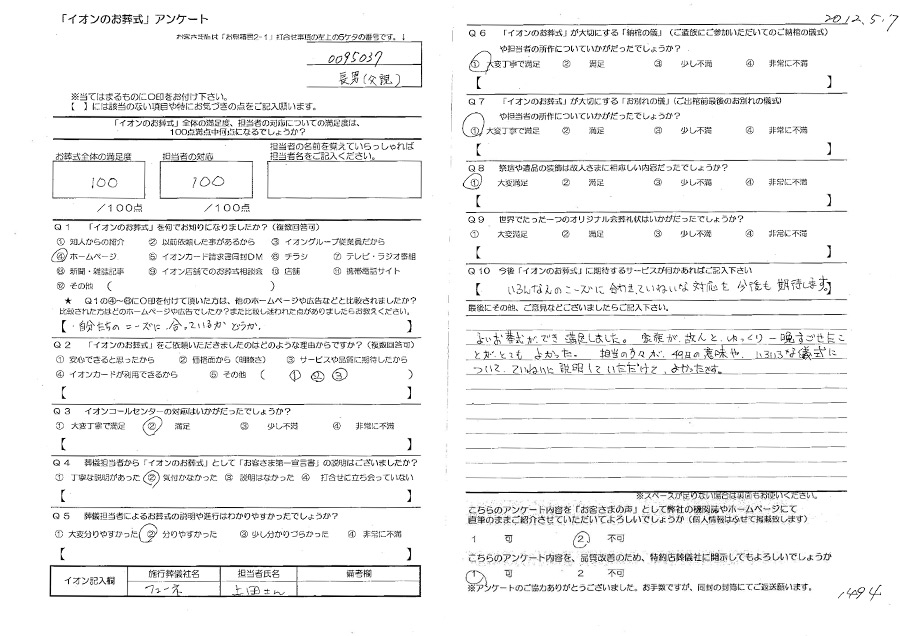 「イオンのお葬式」アンケート
お客さま版は「お見積書2-1」打合せ事項の左上の5ケタの番号です。↓
0095037
長男(父親)
※当てはまるものに〇印をお付け下さい。
【 】には該当のない項目や特にお気づきの点をご記入願います。
「イオンのお葬式」全体の満足度、担当者の対応についての満足度は、
100点満点中何点になるでしょうか?
お葬式全体の満足度
担当者の対応
担当者の名前を覚えていらっしゃれば
担当者名をご記入ください。
100
100
/100点
/100点
Q1 「イオンのお葬式」を何でお知りになりましたか?(複数回答可)
① 知人からの紹介 ② 以前依頼した事があるから ③ イオングループ従業員だから
④ ホームページ ⑤ イオンカード請求書同封DM ⑥ チラシ ⑦ テレビ・ラジオ番組
⑧ 新聞・雑誌記事 ⑨ イオン店舗でのお葬式相談会 ⑩ 店舗 ⑪ 携帯電話サイト
⑫ その他 ( )
★ Q1の④〜⑫に〇印を付けて頂いた方は、他のホームページや広告などと比較されましたか?
比較された方はどのホームページや広告でしたか?また比較し迷われた点がありましたらお教えください。
【・自分たちのニーズに、合っているかどうか。 】
Q2 「イオンのお葬式」をご依頼いただきましたのはどのような理由からですか?(複数回答可)
① 安心できると思ったから ② 価格面から(明瞭さ) ③ サービスや品質に期待したから
④ イオンカードが利用できるから ⑤ その他 ( ① ② ③ )
【 】
Q3 イオンコールセンターの対応はいかがだったでしょうか?
① 大変丁寧で満足 ② 満足 ③ 少し不満 ④ 非常に不満
【 】
Q4 葬儀担当者から「イオンのお葬式」として「お客さま第一宣言書」の説明はございましたか?
① 丁寧な説明があった ② 気付かなかった ③ 説明はなかった ④ 打合せに立ち会っていない
【 】
Q5 葬儀担当者によるお葬式の説明や進行はわかりやすかったでしょうか?
① 大変分りやすかった ② 分りやすかった ③ 少し分りづらかった ④ 非常に不満
【 】
イオン記入欄 施行葬儀社名 担当者氏名 備考欄
フューネ 上田さん
2012.5.7
Q6 「イオンのお葬式」が大切にする「納棺の儀」(ご遺族にご参加いただいてのご納棺の儀式)
や担当者の所作についていかがだったでしょうか?
① 大変丁寧で満足 ② 満足 ③ 少し不満 ④ 非常に不満
【 】
Q7 「イオンのお葬式」が大切にする「お別れの儀」(ご出棺前最後のお別れの儀式)
や担当者の所作についていかがだったでしょうか?
① 大変丁寧で満足 ② 満足 ③ 少し不満 ④ 非常に不満
【 】
Q8 祭壇や遺品の装飾は故人さまに相応しい内容だったでしょうか?
① 大変満足 ② 満足 ③ 少し不満 ④ 非常に不満
【 】
Q9 世界でたった一つのオリジナル会葬礼状はいかがだったでしょうか?
① 大変満足 ② 満足 ③ 少し不満 ④ 非常に不満
【 】
Q10 今後「イオンのお葬式」に期待するサービスが何かあればご記入下さい
【 いろんな人のニーズに合わせていねいな対応を今後も期待します】
最後にその他、ご意見などございましたらご記入下さい。
よいお葬式ができ満足しました。家族が、故人と、ゆっくり一晩すごせたこ
とがとてもよかった。担当の方々が、49日の意味や、いろいろな儀式に
ついて、ていねいに説明していただけて、よかったです。
※スペースが足りない場合は裏面もお使いください。
こちらのアンケート内容を「お客さまの声」として弊社の機関誌やホームページにて
直筆のままご紹介させていただいてよろしいでしょうか(個人情報はふせて掲載致します)
1 可 2 不可
こちらのアンケート内容を、品質改善のため、特約店葬儀社に開示してもよろしいでしょうか
1 可 2 不可
※アンケートのご協力ありがとうございました。お手数ですが、同封の封筒にてご返送願います。
1494